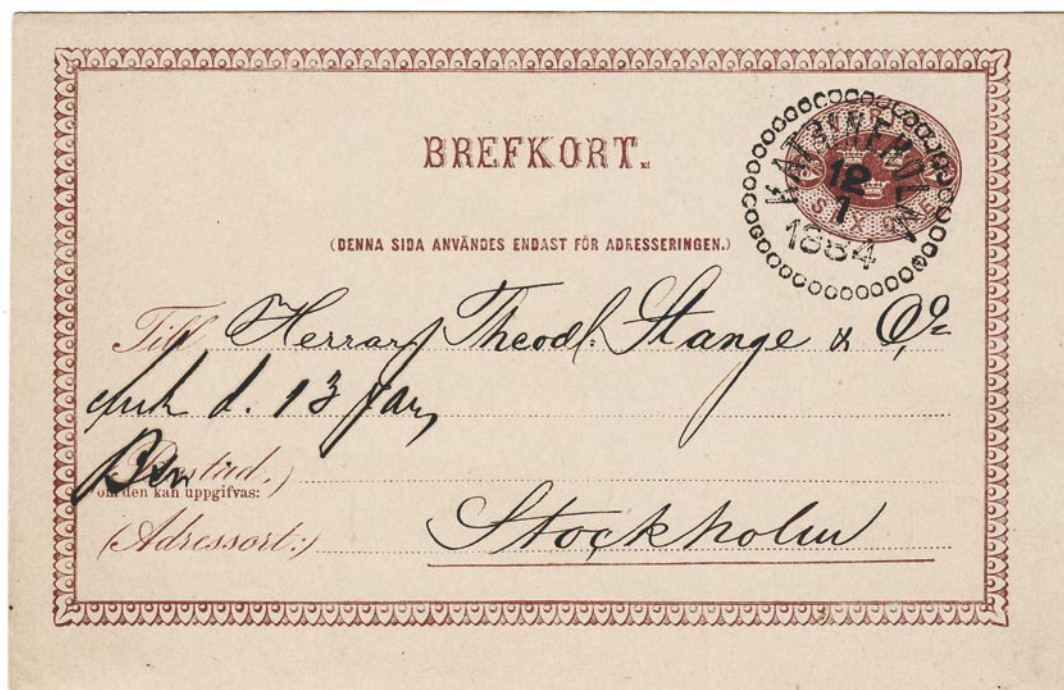 BREFKORT.
KATRINEHOLM
12
1
1884
SEX ÖRE
(DENNA SIDA ANVÄNDES ENDAST FÖR ADRESSERINGEN.)
Till Herrar Theod. Stange & Co
d. 13 Jan
(Bostad.)
om den kan uppgifvas:
(Adressort:) Stockholm